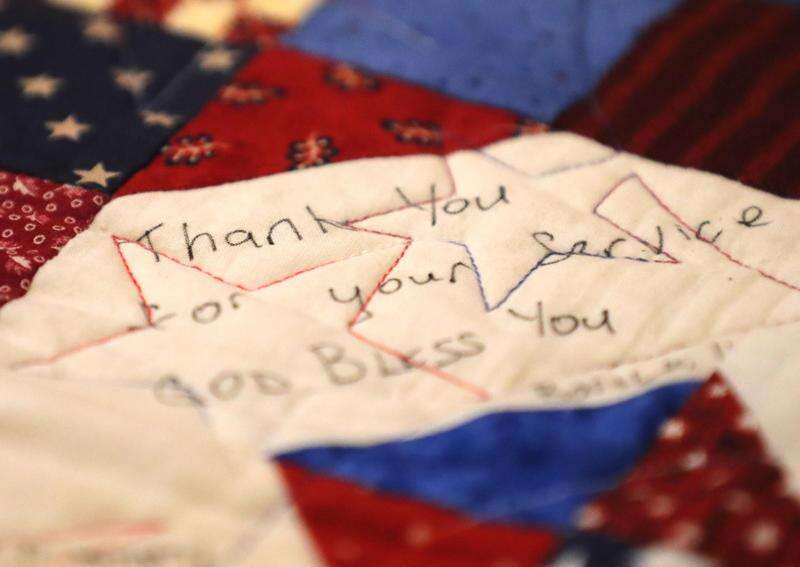 Thank You
for your Service
GOD BLESS You